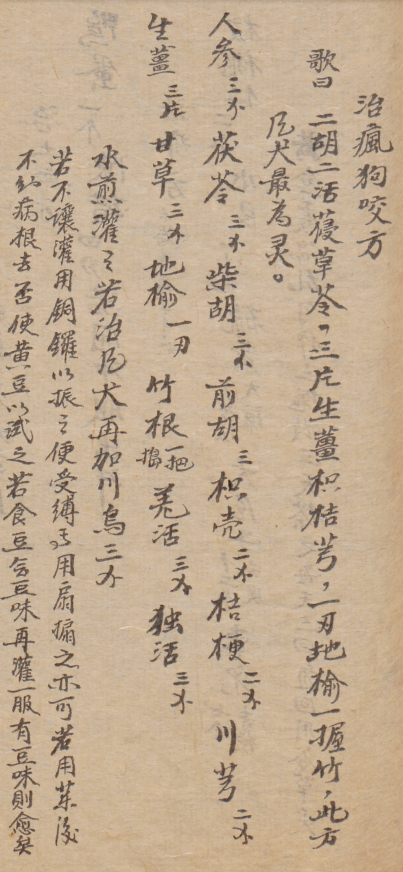 治瘋狗咬方
歌曰 二胡二活葠草苓、三片生薑枳桔芎，一刃地榆一握竹，此方
尫犬最為灵。
人参三个 茯苓三个 柴胡三个 前胡三 枳壳二个 桔梗二个 川芎二个
生薑三片 甘草三个 地榆一刃 竹根一把搗 羌活三个 独活三个
水煎灌之若治尫犬再加川烏三个
若不讓灌用銅鑼以振之便受縛 用扇搧之亦可若用葯後
不知病根去否使黄豆以試之若食豆令豆味再灌一服有豆味則愈矣